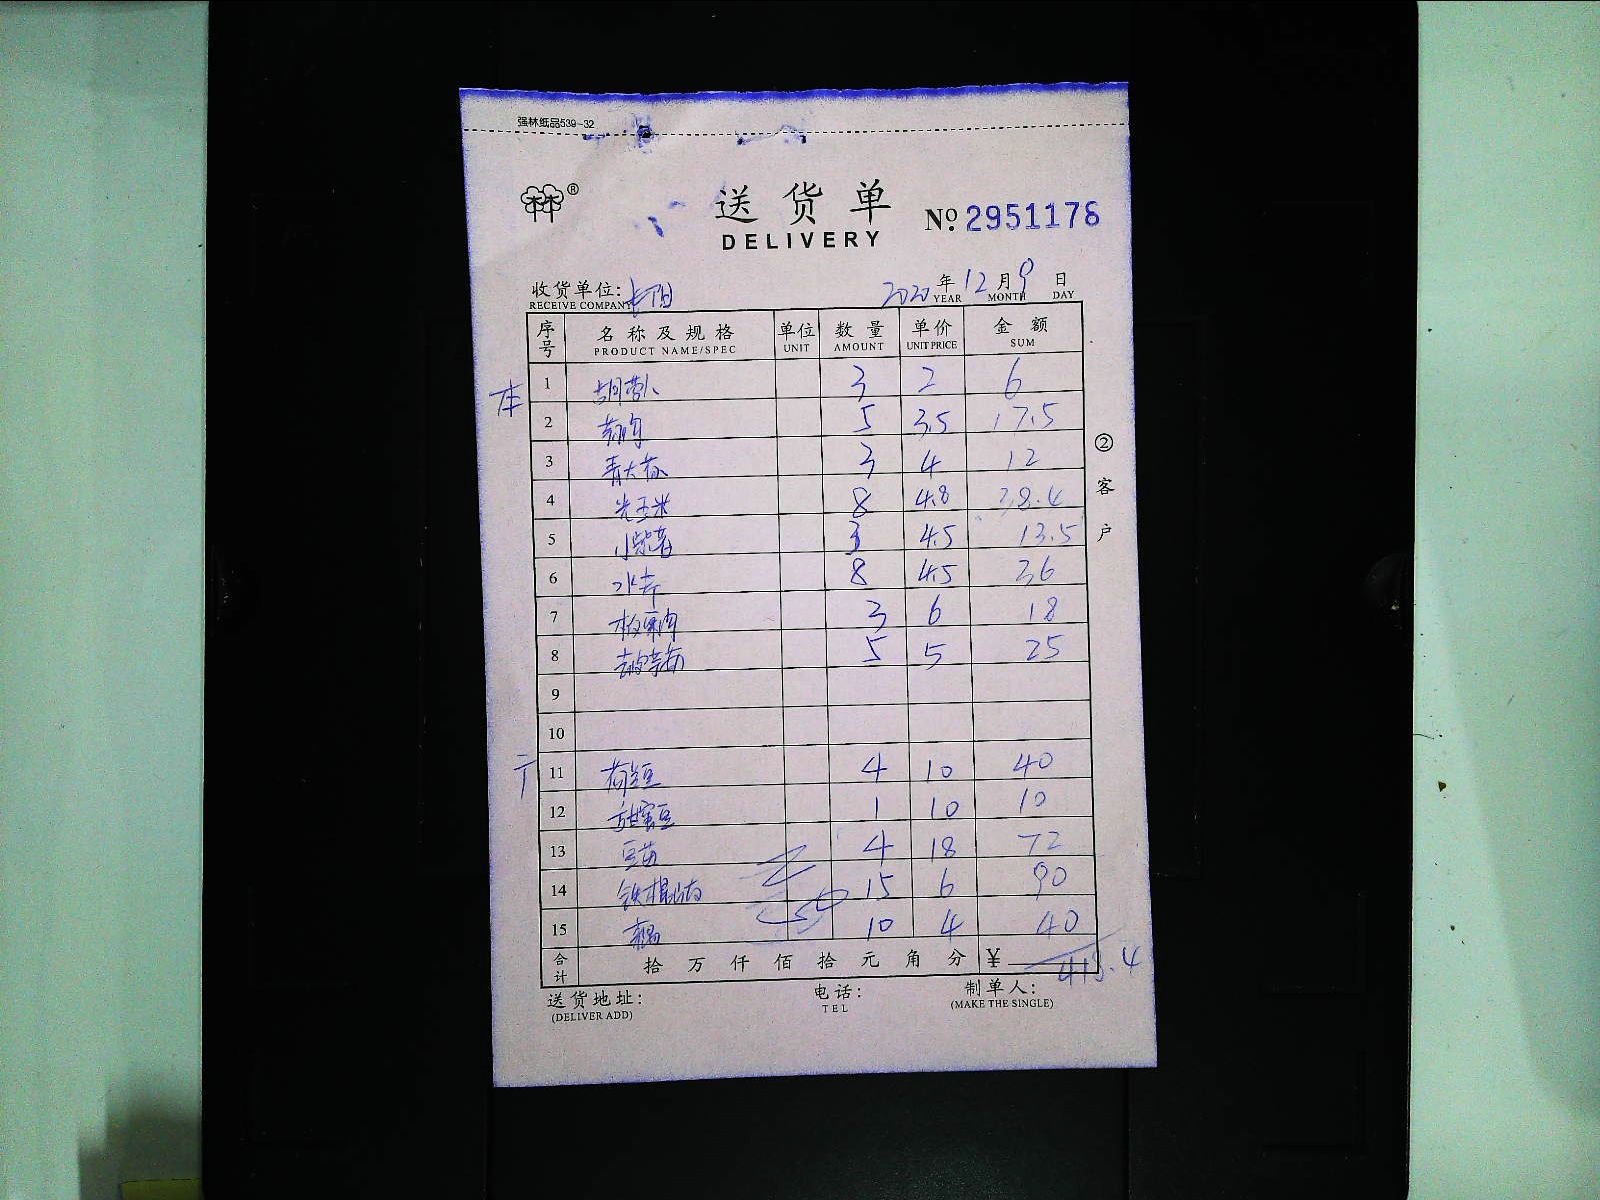 强林纸品539-32
®
送货单
DELIVERY
No 2951176
收货单位:
RECEIVE COMPANY
2020年12月9日
YEAR MONTH DAY
序号 名称及规格 单位 数量 单价 金额
PRODUCT NAME/SPEC UNIT AMOUNT UNIT PRICE SUM
1 胡萝卜 3 2 6
2 5 3.5 17.5
3 青大 3 4 12
4 光玉米 8 4.8 38.4
5 小紫薯 3 4.5 13.5
6 8 4.5 36
7 3 6 18
8 5 5 25
9
10
11 荷兰豆 4 10 40
12 甜蜜豆 1 10 10
13 豆苗 4 18 72
14 铁棍山药 15 6 90
15 10 4 40
合计 拾万仟佰拾元角分 ¥ 418.4
② 客户
送货地址:
(DELIVER ADD)
电话:
TEL
制单人:
(MAKE THE SINGLE)